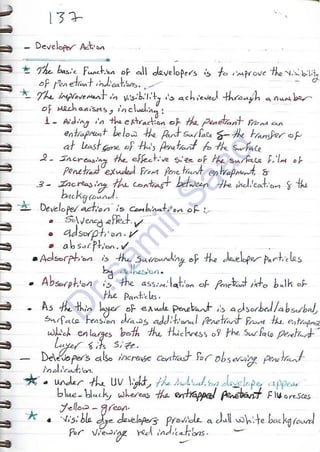 137
- Developer Action
* The basic Function of all developers is to improve the visibility
of Penetrant indications.
* The improvement in visibility is achieved through a number
of Mechanisms, including:
1- Aiding in the extraction of the penetrant from an
entrapment below the Part Surface & the transfer of
at least some of this Penetrant to the Surface
2- Increasing the effective size of the surface film of
Penetrant exuded from Penetrant entrapment &
3- Increasing the contrast between the indication & the
background.
* Developer action is Combination of:
• Solvency effect. ✓
• adsorption. ✓
• absorption. ✓
• Adsorption is the Surrounding of the developer Particles
by adhesion.
• Absorption is the assimilation of Penetrant into bulk of
the Particles.
• As the thin layer of exude penetrant is adsorbed/absorbed,
surface tension draws additional Penetrant From the entrapment
which enlarges both the thickness of the Surface Penetrant
Layer & its Size.
- Developers also increase Contrast For observing penetrant
indication.
* • Under the UV light, the indication developer appear
blue-black, whereas the entrapped Penetrant Fluoresces
Yellow-green.
* • Visible dye developers provide a dull white background
For viewing red indications.